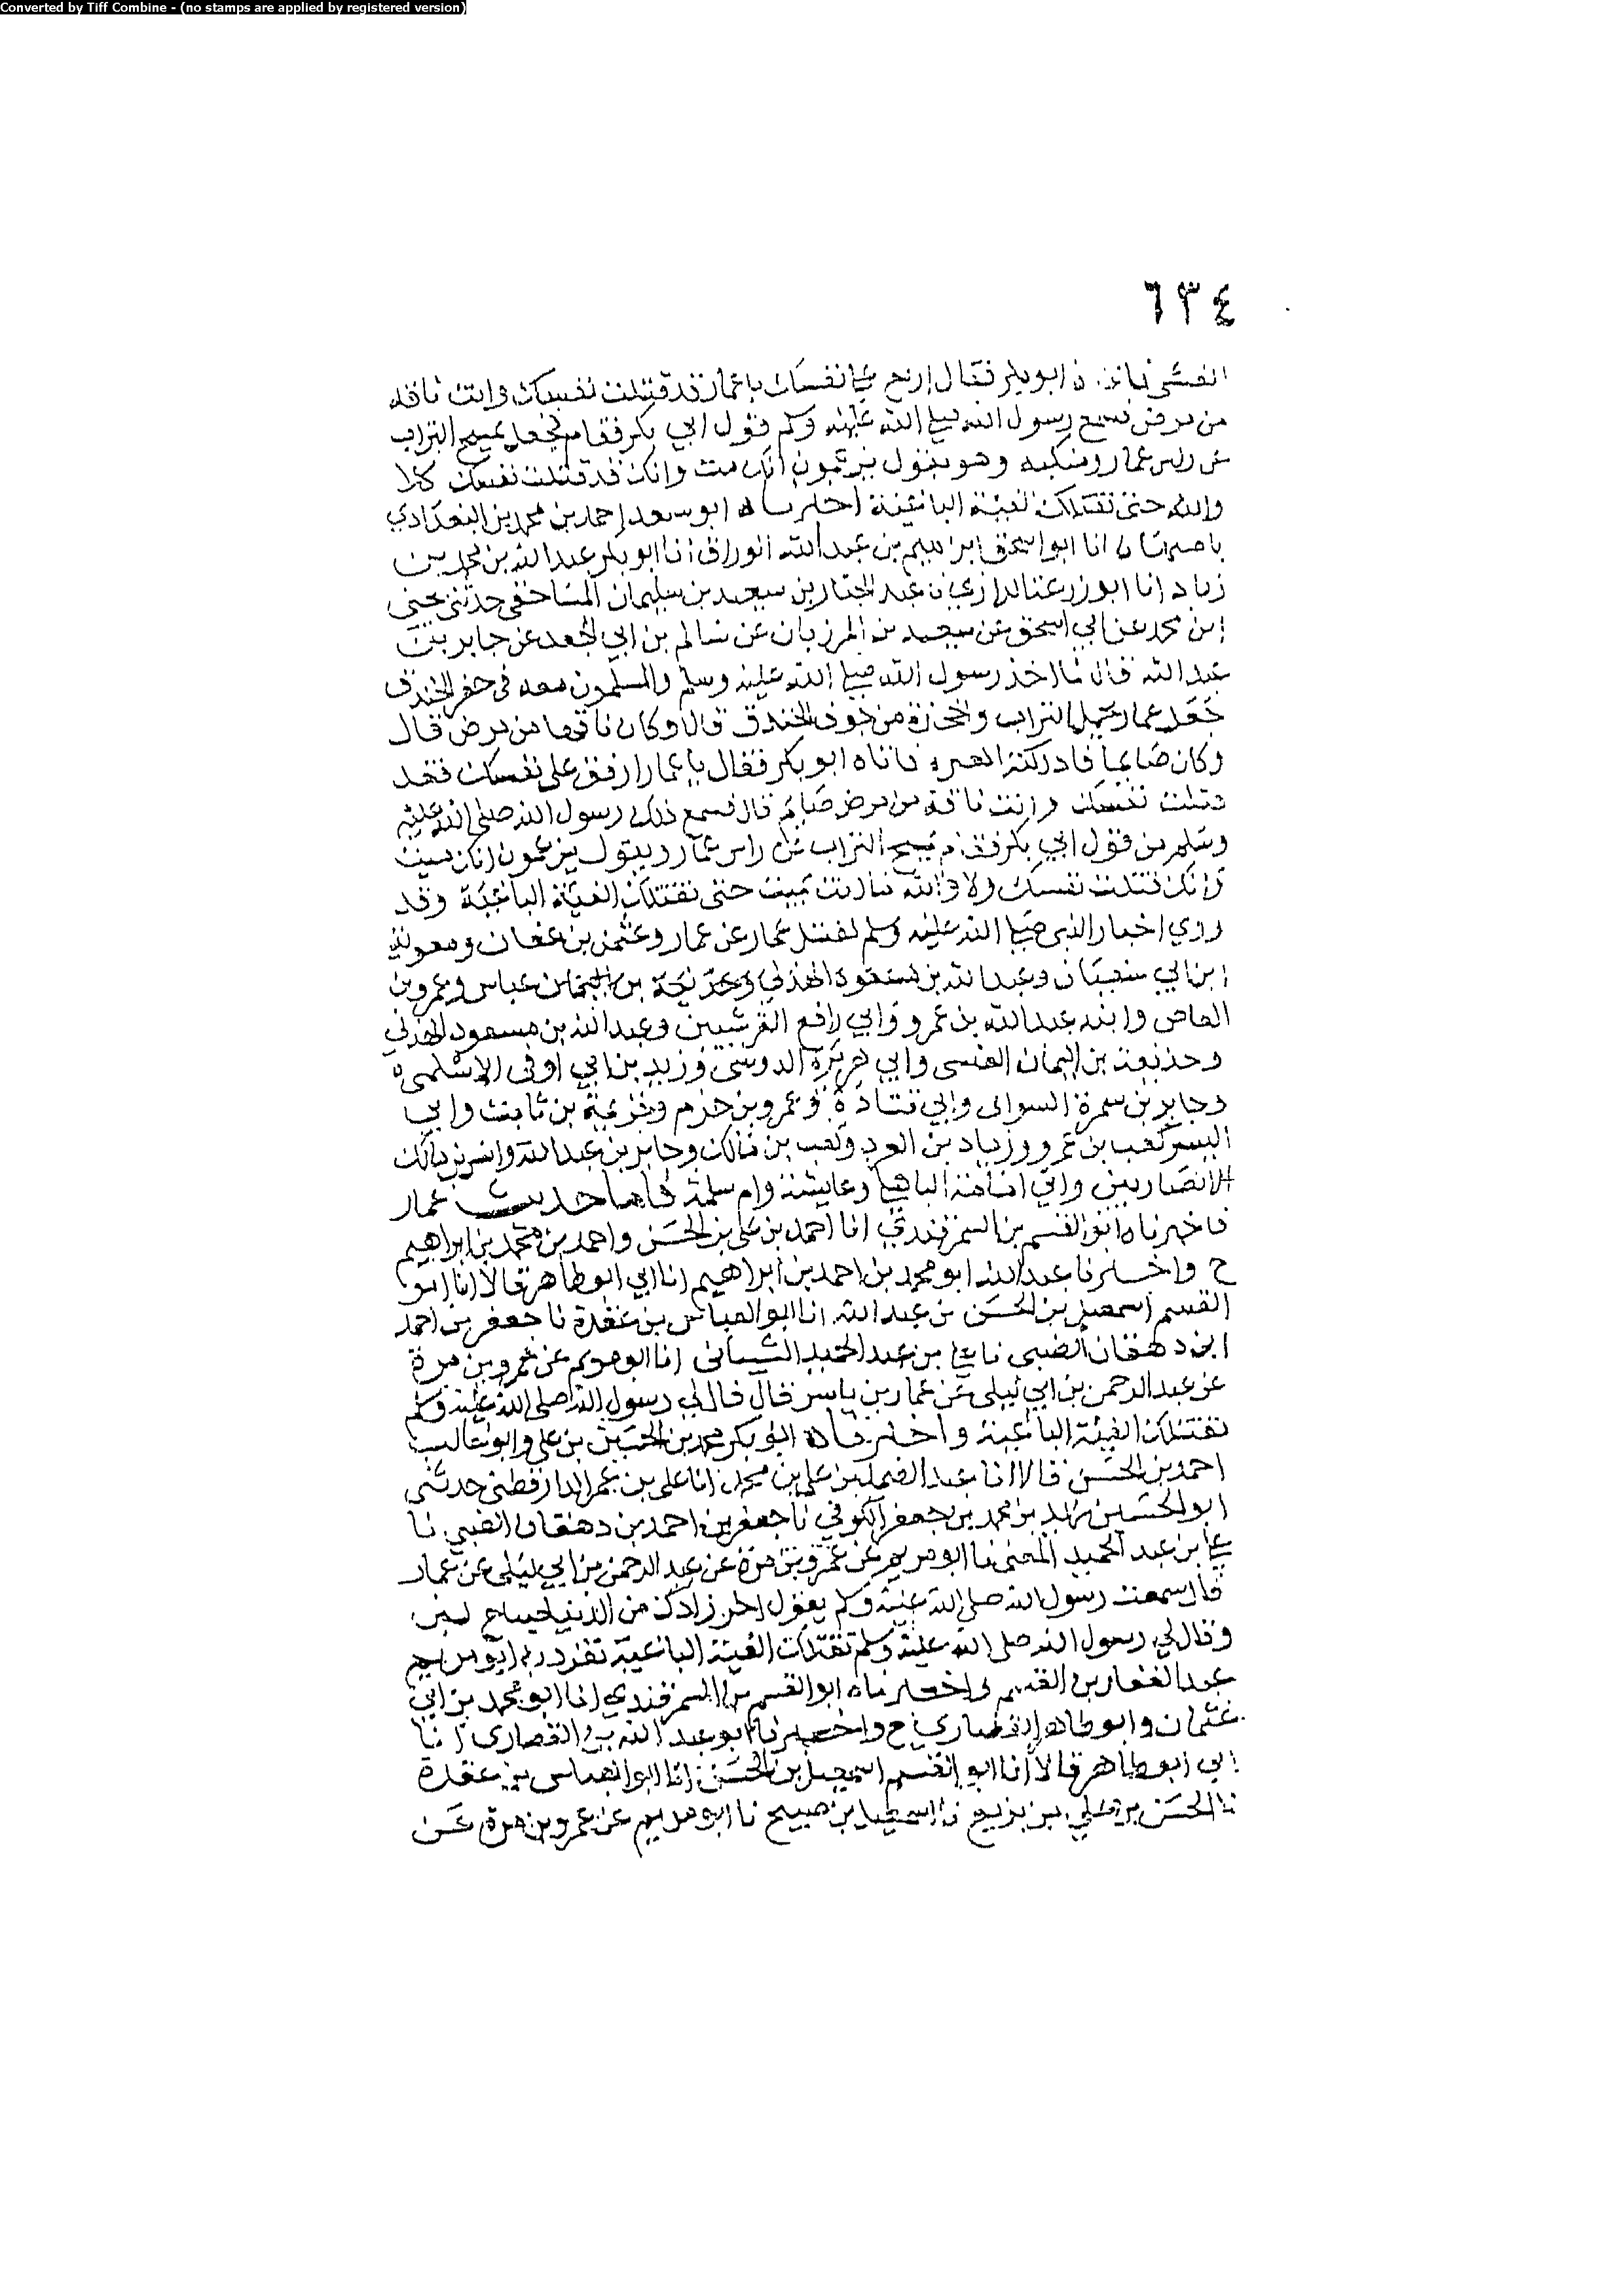 Converted by Tiff Combine - (no stamps are applied by registered version)
٦٣٤
ابو بكر فقال اربع على نفسك يا عمار قد قتلت نفسك وانت ناقه
من مرض فسمع رسول الله صلى الله عليه وسلم قول ابي بكر فقام فجعل يمسح التراب
عن راس عمار ومنكبه وهو يقول يزعمون انك مت وانك قد قتلت نفسك كلا
والله حتى تقتلك الفئة الباغية اخبرناه ابو سعد احمد بن محمد بن البغدادي
باصبهان انا ابو اسحق ابراهيم بن عبد الله الوراق انا ابو بكر عبد الله بن محمد بن
زياد انا ابو زرعة الرازي نا عبد الجبار بن سعيد بن سليمان المساحقي حدثني يحيى
ابن محمد عن ابي اسحق عن سعيد بن المرزبان عن سالم بن ابي الجعد عن جابر بن
عبد الله قال لما اخذ رسول الله صلى الله عليه وسلم والمسلمون معه في حفر الخندق
جعل عمار يحمل التراب والحجارة من جوف الخندق قال وكان ناقها من مرض قال
وكان صايما فادركته فاتاه ابو بكر فقال يا عمار ارفق على نفسك فقد
قتلت نفسك وانت ناقه من مرض صايم قال فسمع ذلك رسول الله صلى الله عليه
وسلم من قول ابي بكر فقام يمسح التراب عن راس عمار ويقول يزعمون انك ميت
وانك قتلت نفسك ولا والله ما انت بميت حتى تقتلك الفئة الباغية وقد
روي اخبار النبي صلى الله عليه وسلم بقتل عمار عن عمار وعثمن بن عفان ومعوية
ابن ابي سفيان وعبد الله بن مسعود الهذلي وحذيفة بن اليمان عباس وعمرو بن
العاص وابنه عبد الله بن عمرو وابي رافع القرشيين وعبد الله بن مسعود الهذلي
وحذيفة بن اليمان العبسي وابي هريرة الدوسي وزيد بن ابي اوفى الاسلمي
وجابر بن سمرة السوائي وابي قتادة وعمرو بن حزم وخزيمة بن ثابت وابي
اليسر كعب بن عمرو وزياد بن العرد وكعب بن مالك وجابر بن عبد الله وانس بن مالك
الانصاريين وابي امامة الباهلي وعايشة وام سلمة فاما حديث عمار
فاخبرناه ابو القسم بن السمرقندي انا احمد بن علي بن الحسن واحمد بن محمد بن ابراهيم
ح واخبرنا عبد الله ابو محمد بن احمد بن ابراهيم انا ابي ابو طاهر قالا انا ابو
القسم اسمعيل بن الحسن بن عبد الله انا ابو العباس بن عقدة نا جعفر بن احمد
ابن دهقان الضبي نا علي بن عبد الحميد الشيباني انا ابو مريم عن عمرو بن مرة
عن عبد الرحمن بن ابي ليلى عن عمار بن ياسر قال قال لي رسول الله صلى الله عليه وسلم
تقتلك الفئة الباغية واخبرناه ابو بكر محمد بن الحسين بن علي وابو غالب
احمد بن الحسن قالا انا عبد الصمد بن علي بن محمد انا علي بن عمر الدارقطني حدثني
ابو الحسين زيد بن محمد بن جعفر الكوفي نا جعفر بن احمد بن دهقان الضبي نا
علي بن عبد الحميد المعني نا ابو مريم عن عمرو بن مرة عن عبد الرحمن بن ابي ليلى عن عمار
قال سمعت رسول الله صلى الله عليه وسلم يقول اخر زادك من الدنيا ضياح لبن
وقال لي رسول الله صلى الله عليه وسلم تقتلك الفئة الباغية تفرد به ابو مريم
عبد الغفار بن القسم واخبرناه ابو القسم بن السمرقندي انا ابو محمد بن ابي
عثمان وابو طاهر القصاري ح واخبرنا ابو عبد الله بن القصاري انا
ابي ابو طاهر قالا انا ابو القسم اسمعيل بن الحسن انا ابو العباس بن عقدة
نا الحسن بن علي بن بزيع نا اسمعيل بن صبيح نا ابو مريم عن عمرو بن مرة عن